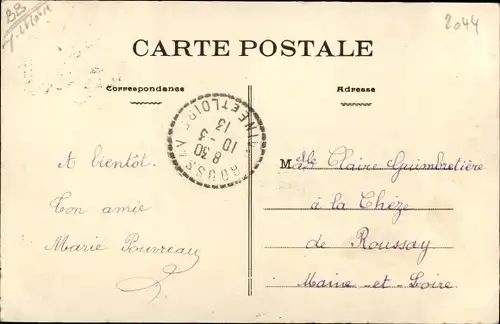 BB
2044
CARTE POSTALE
Correspondance
Adresse
ROUSSAY
MAINE ET LOIRE
8 30
10 - 3
13
A bientôt.
Ton amie
Marie Pouvreau
Mdlle Claire Guimbretière
à la Chèze
de Roussay
Maine-et-Loire